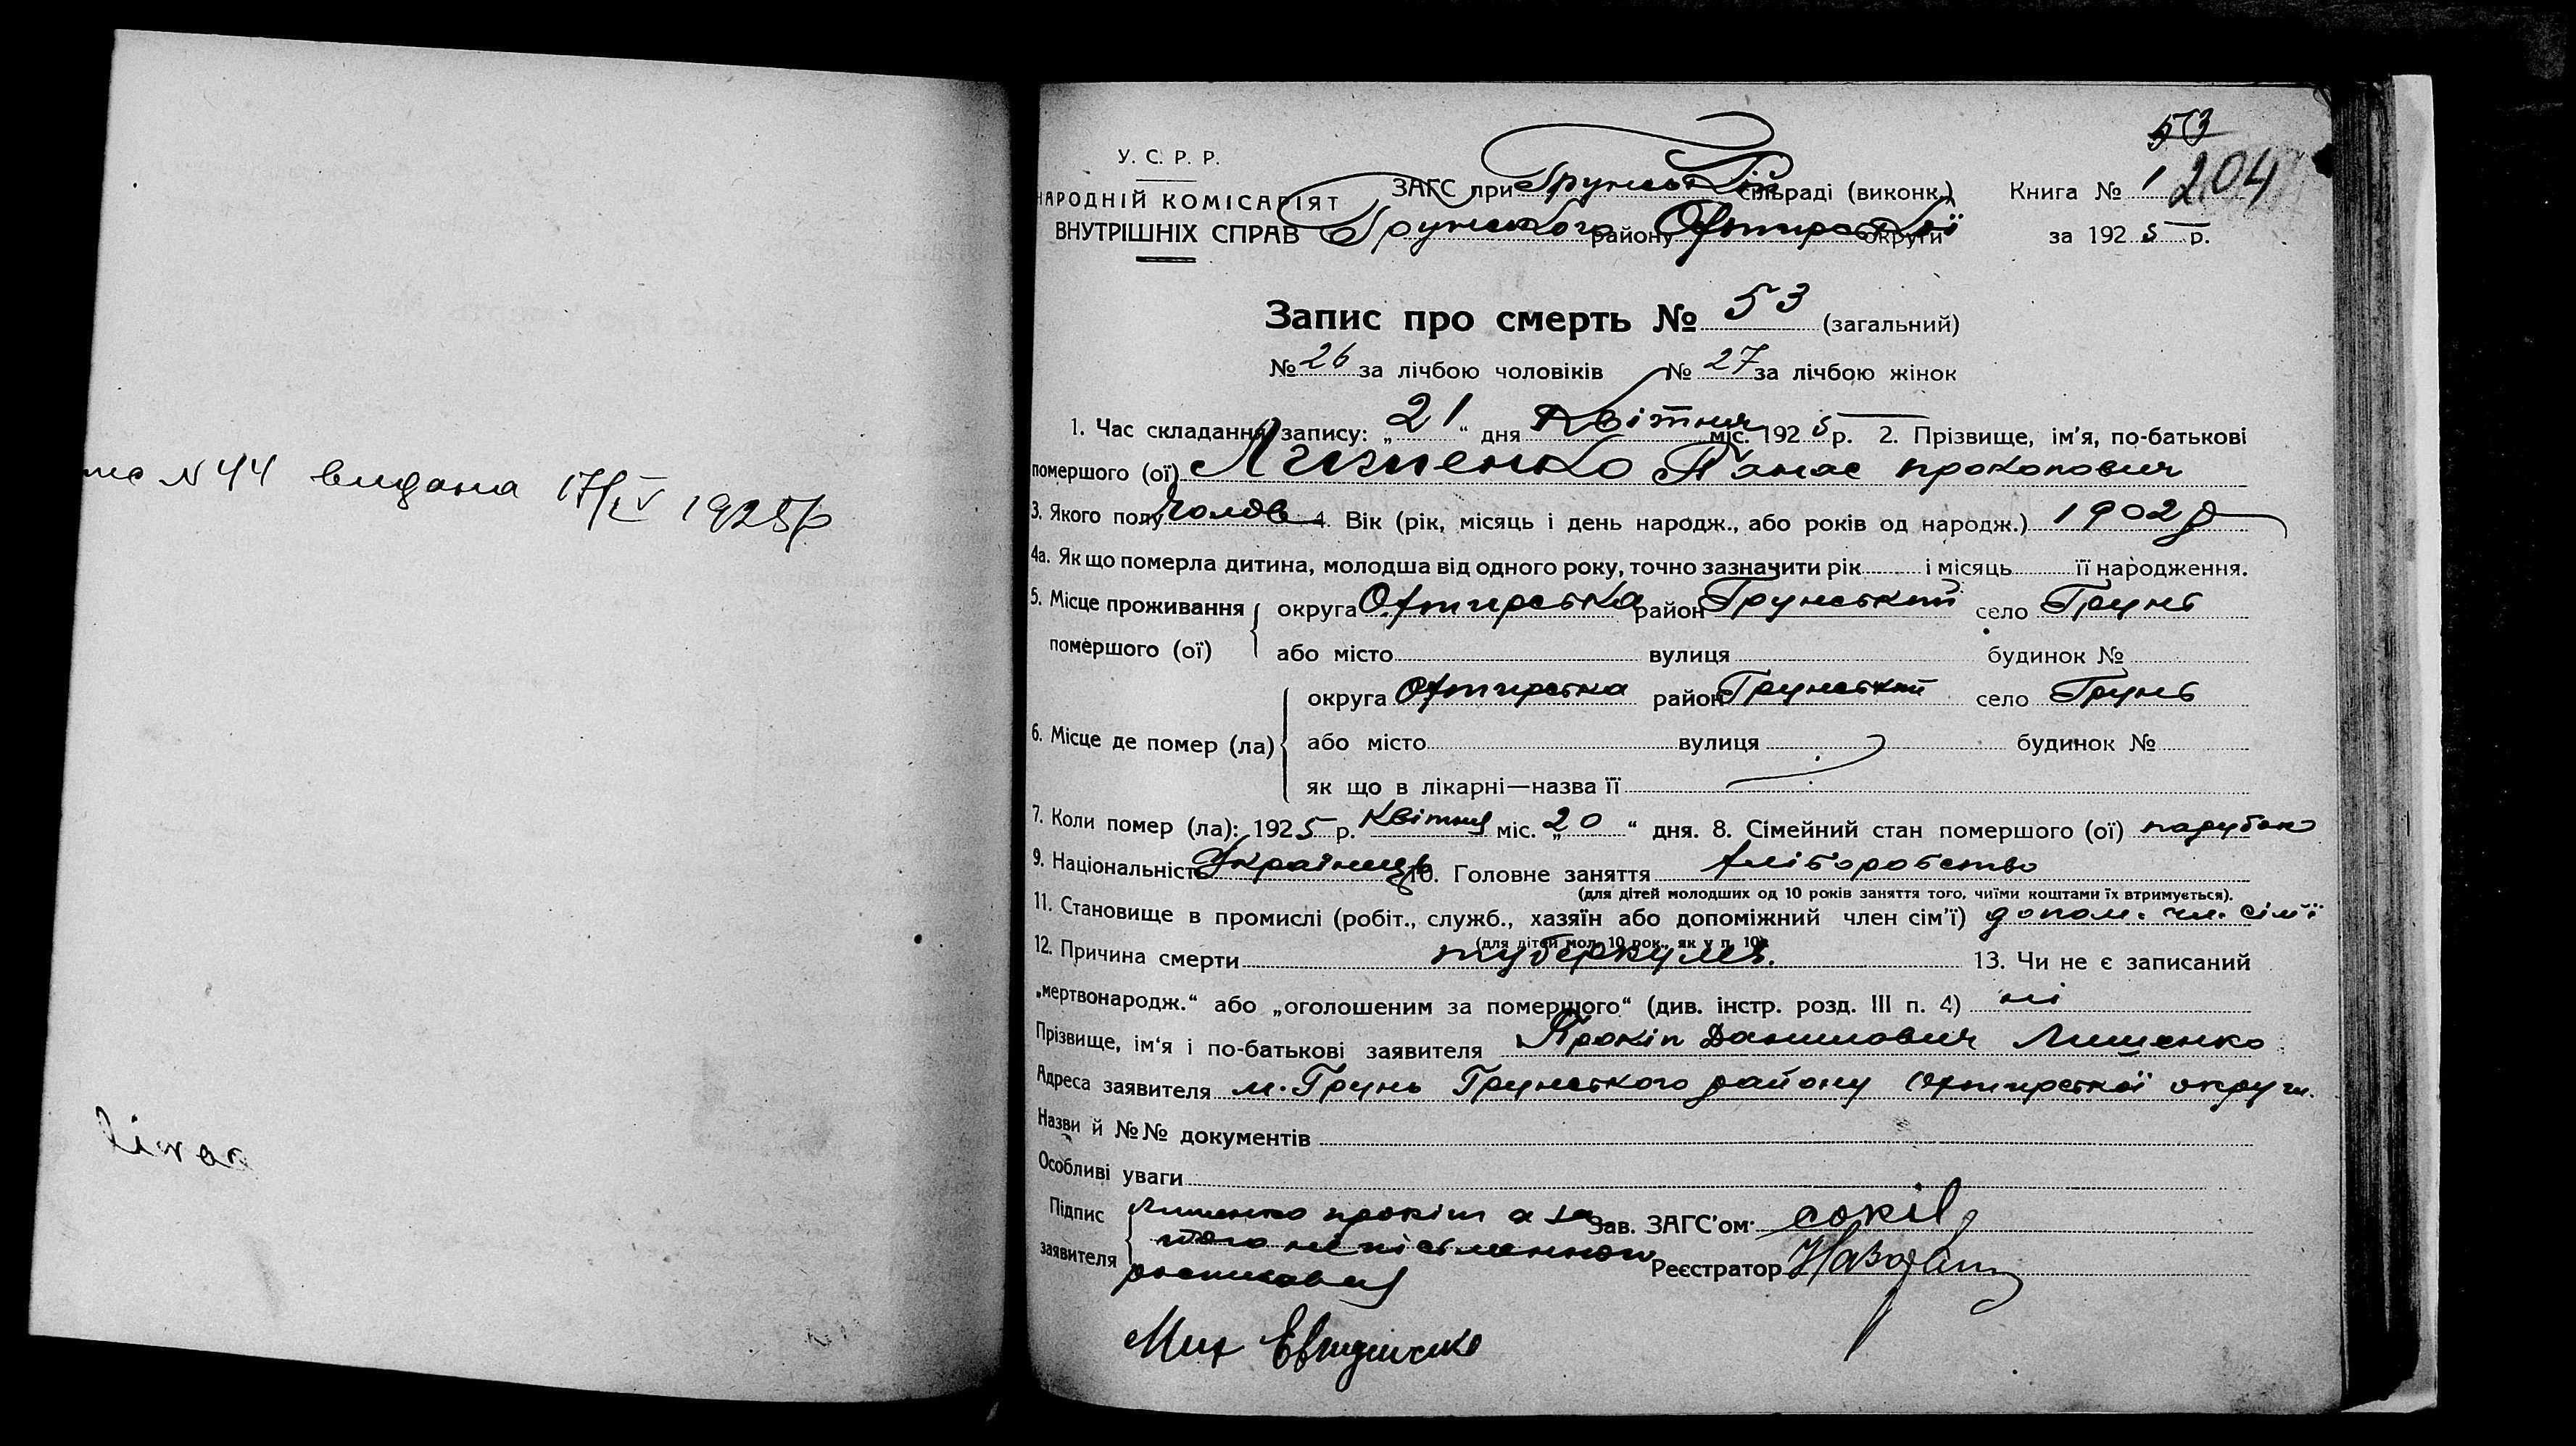 № 44 видана 17/IV 1925 р
53
204
У. С. Р. Р.
НАРОДНІЙ КОМІСАРІЯТ
ВНУТРІШНІХ СПРАВ
ЗАГС при Грунській сільраді (виконк.)
Грунського району Охтирської округи
Книга № 1
за 1925 р.
Запис про смерть № 53 (загальний)
№ 26 за лічбою чоловіків № 27 за лічбою жінок
1. Час складання запису: „21“ дня Квітня міс. 1925 р. 2. Прізвище, ім’я, по-батькові
помершого (ої) Панас прокопович
3. Якого полу Чолов 4. Вік (рік, місяць і день народж., або років од народж.) 1902 р
4а. Як що померла дитина, молодша від одного року, точно зазначити рік і місяць її народження.
5. Місце проживання помершого (ої)
округа Охтирська район Грунський село Грунь
або місто вулиця будинок №
6. Місце де помер (ла)
округа Охтирська район Грунський село Грунь
або місто вулиця будинок №
як що в лікарні—назва її
7. Коли помер (ла): 1925 р. Квітня міс. „20“ дня. 8. Сімейний стан помершого (ої) парубок
9. Національність Українець 10. Головне заняття хліборобство
(для дітей молодших од 10 років заняття того, чиїми коштами їх втримується).
11. Становище в промислі (робіт., служб., хазяїн або допоміжний член сім’ї) допом. чл. сім'ї
(для дітей мол. 10 рок., як у п. 10).
12. Причина смерти туберкульз. 13. Чи не є записаний
„мертвонародж.“ або „оголошеним за помершого“ (див. інстр. розд. III п. 4) ні
Прізвище, ім‘я і по-батькові заявителя Прокіп Данилович Лишенко
Адреса заявителя м. Грунь Грунського району Охтирської округи.
Назви й №№ документів
Особливі уваги
Підпис заявителя
Лишенко прокіп а за
його неписьменного
росписався
Зав. ЗАГС’ом сокіл
Реєстратор
Мих